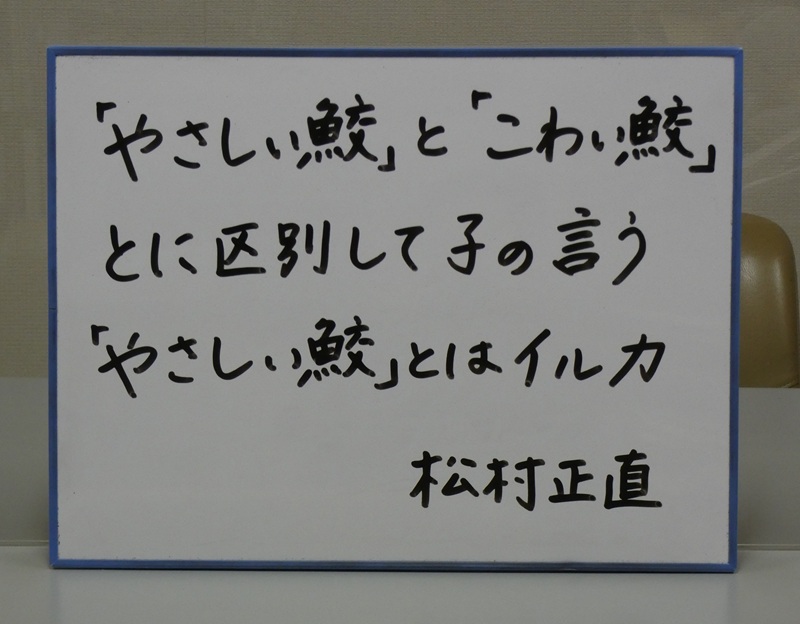 「やさしい鮫」と「こわい鮫」
とに区別して子の言う
「やさしい鮫」とはイルカ
松村正直